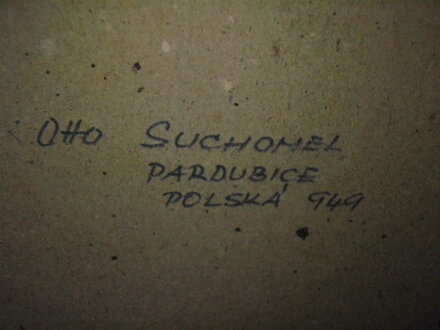 Otto SUCHOMEL
PARDUBICE
POLSKÁ 949